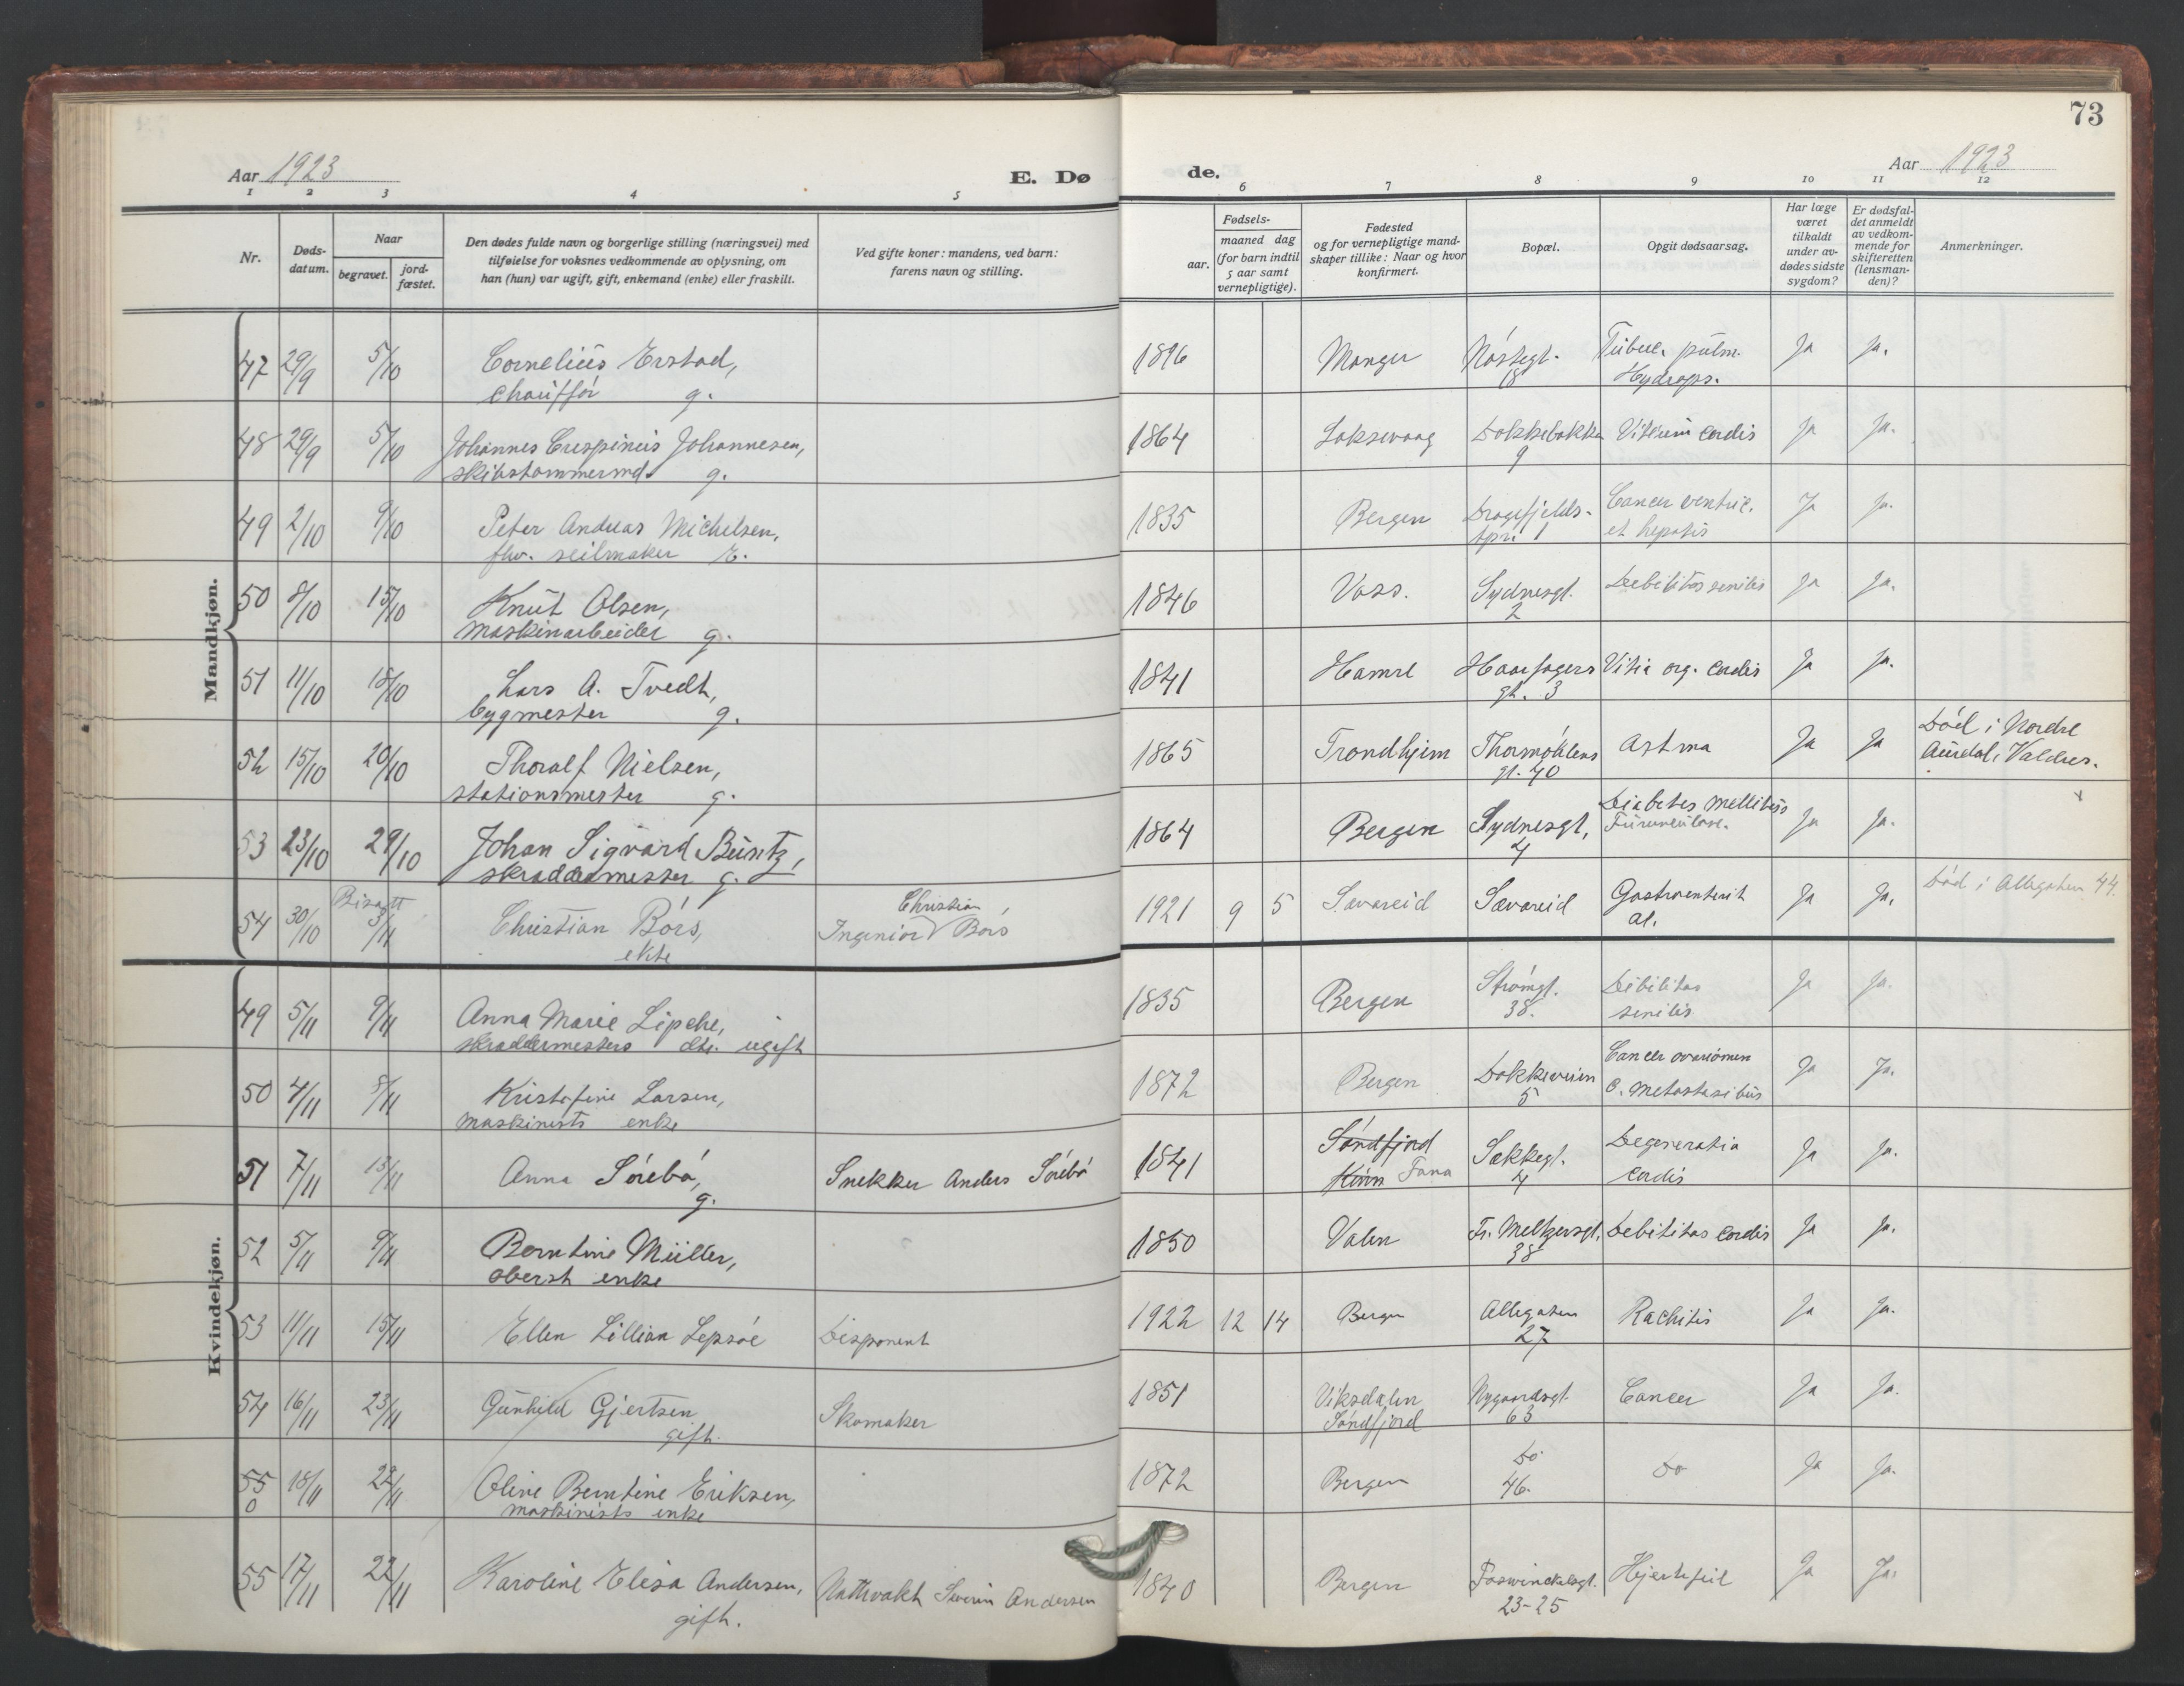 73
Aar 1923
E. Dø
de.
Aar 1923
1 2 3 4 5 6 7 8 9 10 11 12
Nr.
Døds-
datum.
Naar
begravet.
jord-
fæstet.
Den dødes fulde navn og borgerlige stilling (næringsvei) med
tilføielse for voksnes vedkommende av oplysning, om
han (hun) var ugift, gift, enkemand (enke) eller fraskilt.
Ved gifte koner: mandens, ved barn:
farens navn og stilling.
Fødsels-
aar.
maaned dag
(for barn indtil
5 aar samt
vernepligtige).
Fødested
og for vernepligtige mand-
skaper tillike: Naar og hvor
konfirmert.
Bopæl.
Opgit dødsaarsag.
Har læge
været
tilkaldt
under av-
dødes sidste
sygdom?
Er dødsfal-
det anmeldt
av vedkom-
mende for
skifteretten
(lensman-
den)?
Anmerkninger.
Mandkjøn.
47 29/9 5/10 Cornelius Erstad, 1896 Manger Nöstegt. Tuberc. pulm. Ja Ja.
chaufför g. 18 Hydrops.
48 29/9 5/10 Johannes Crespinius Johannesen, 1864 Laksevaag Dokkebakken Vitium cordis Ja Ja.
skibstømmermd. g. 9
49 2/10 9/10 Peter Andreas Michelsen, 1835 Bergen Dragefjelds- Cancer ventric. Ja Ja.
fhv. seilmaker E. tpr. 1 et hepatis
50 8/10 15/10 Knut Olsen, 1846 Voss. Sydnesgt. Debilitas senilis Ja Ja.
maskinarbeider g. 2
51 11/10 18/10 Lars A. Tvedt, 1841 Hamre Haarfagers Vitia org. cordis Ja Ja.
bygmester g. gt. 3
52 15/10 20/10 Thoralf Nielsen, 1865 Trondhjem Thormøhlens Astma Ja Ja Död i Nordre
stationsmester g. gt. 40 Aurdal, Valdres.
53 23/10 29/10 Johan Sigvard Büntz, 1864 Bergen Sydnesgt. Diabetes mellitus Ja Ja.
skræddermester g. 4 Furunculose.
54 30/10 Bisatt 3/11 Christian Börs, Ingeniör Christian Börs 1921 9 5 Sævareid Sævareid Gastroenterit Ja Ja. Död i Allegaten 44.
ekte al.
Kvindekjøn.
49 5/11 9/11 Anna Marie Lipche, 1835 Bergen Strömgt. Debilitas Ja Ja.
skræddermesters dtr. ugift 38. senilis
50 4/11 8/11 Kristofine Larsen, 1872 Bergen Dokkeveien Cancer ovariomen Ja Ja.
maskinists enke 5 c. metastasibus
51 7/11 13/11 Anna Sörebö, Snekker Anders Sörebö 1841 Söndfjord Sækkegt. Degeneratio Ja Ja.
g. Kinn Fana 4 cordis
52 5/11 9/11 Berntine Müller, 1850 Valen Fr. Meltzersgt. Debilitas cordis Ja Ja.
oberst enke 38
53 11/11 15/11 Ellen Lillian Lepsöe Disponent 1922 12 14 Bergen Allegaten Rachitis Ja Ja.
27
54 16/11 23/11 Gunhild Gjertsen Skomaker 1851 Viksdalen Nygaardsgt. Cancer Ja Ja.
gift. Söndfjord 63
55 18/11 22/11 Oline Berntine Eriksen, 1872 Bergen Do Do Ja Ja.
o maskinists enke 46.
55 17/11 22/11 Karoline Elisa Andersen, Nattvakt Severin Andersen 1840 Bergen Foswinckelsgt. Hjertefeil Ja Ja.
gift. 23-25